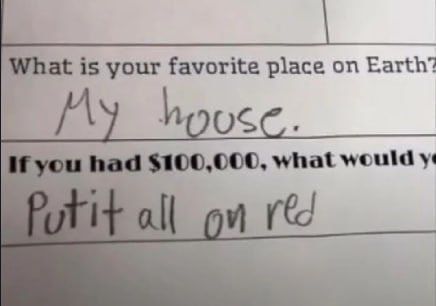 What is your favorite place on Earth?
My house.
If you had $100,000, what would
Put it all on red